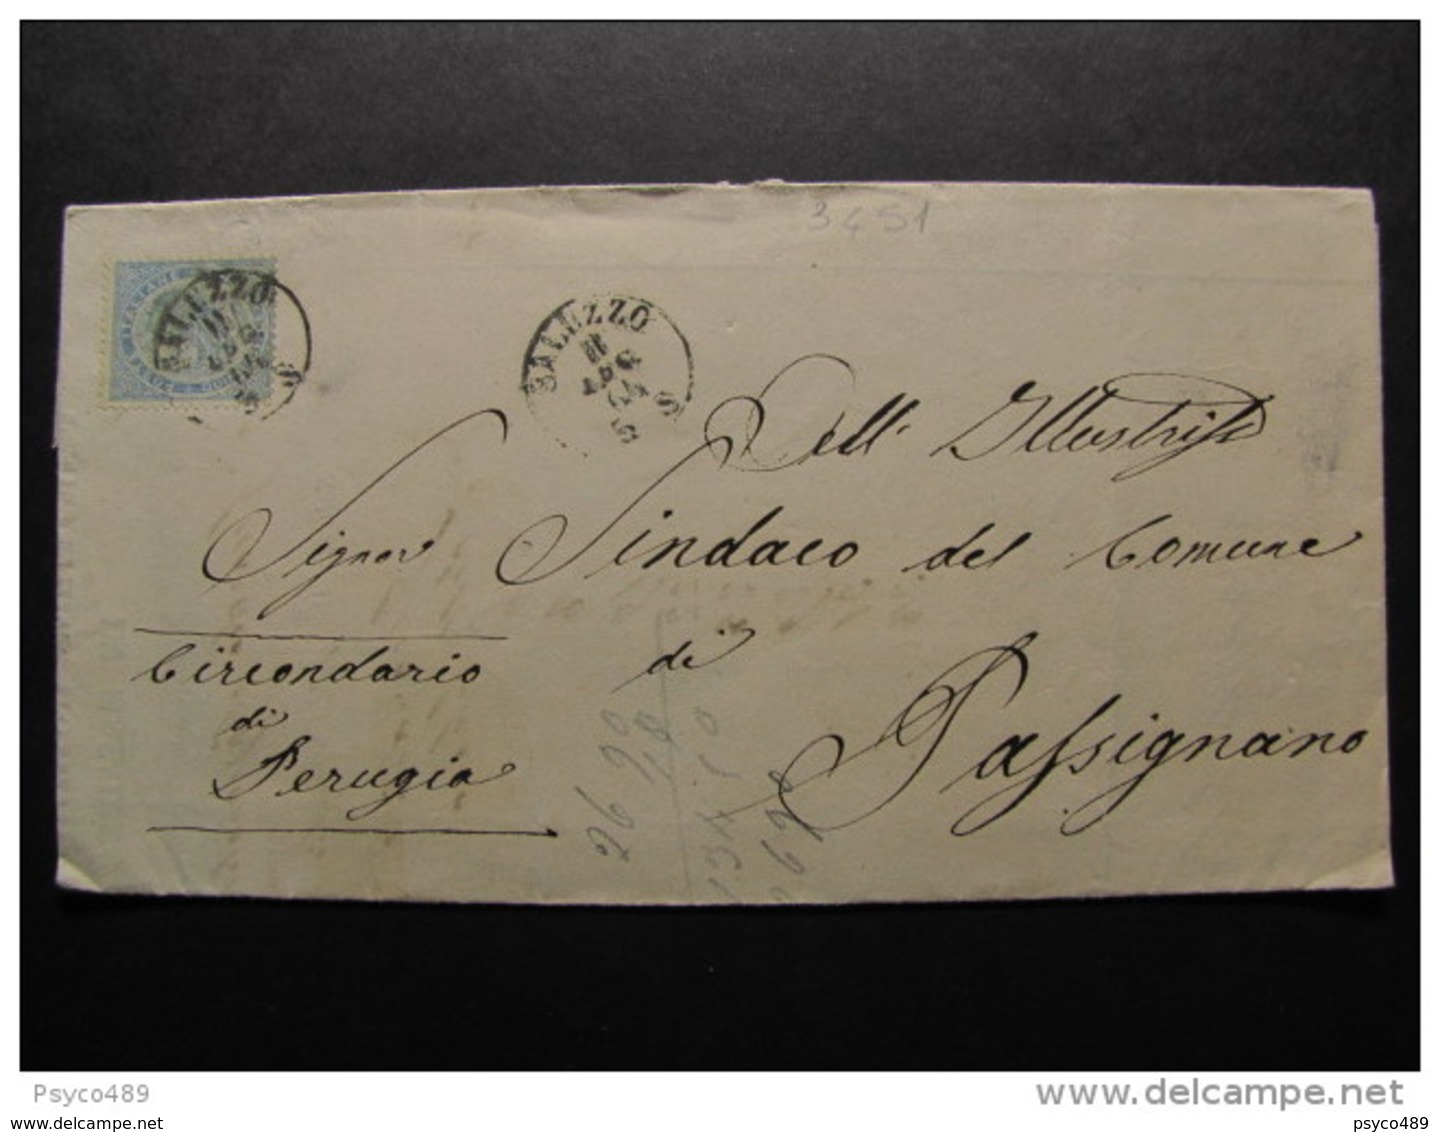 3451
SALUZZO
SALUZZO
11
S
Dell' Illustriss
Signor Sindaco del Comune
di
Passignano
Circondario
di
Perugia
26 90
Psyco489
www.delcampe.net
www.delcampe.net
psyco489